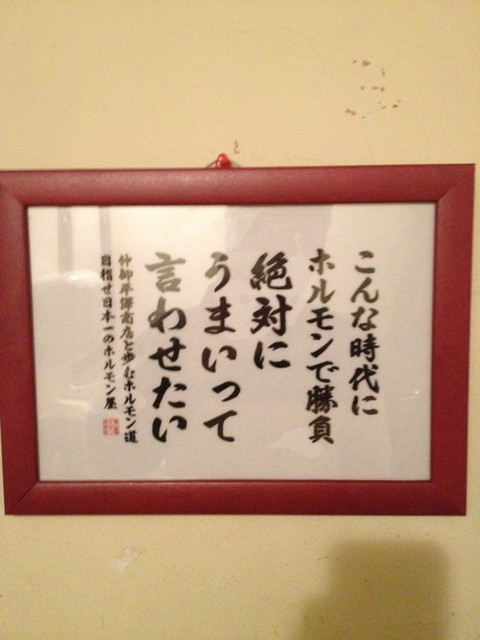 こんな時代に
ホルモンで勝負
絶対に
うまいって
言わせたい
仲卸平澤商店と歩むホルモン道
目指せ日本一のホルモン屋